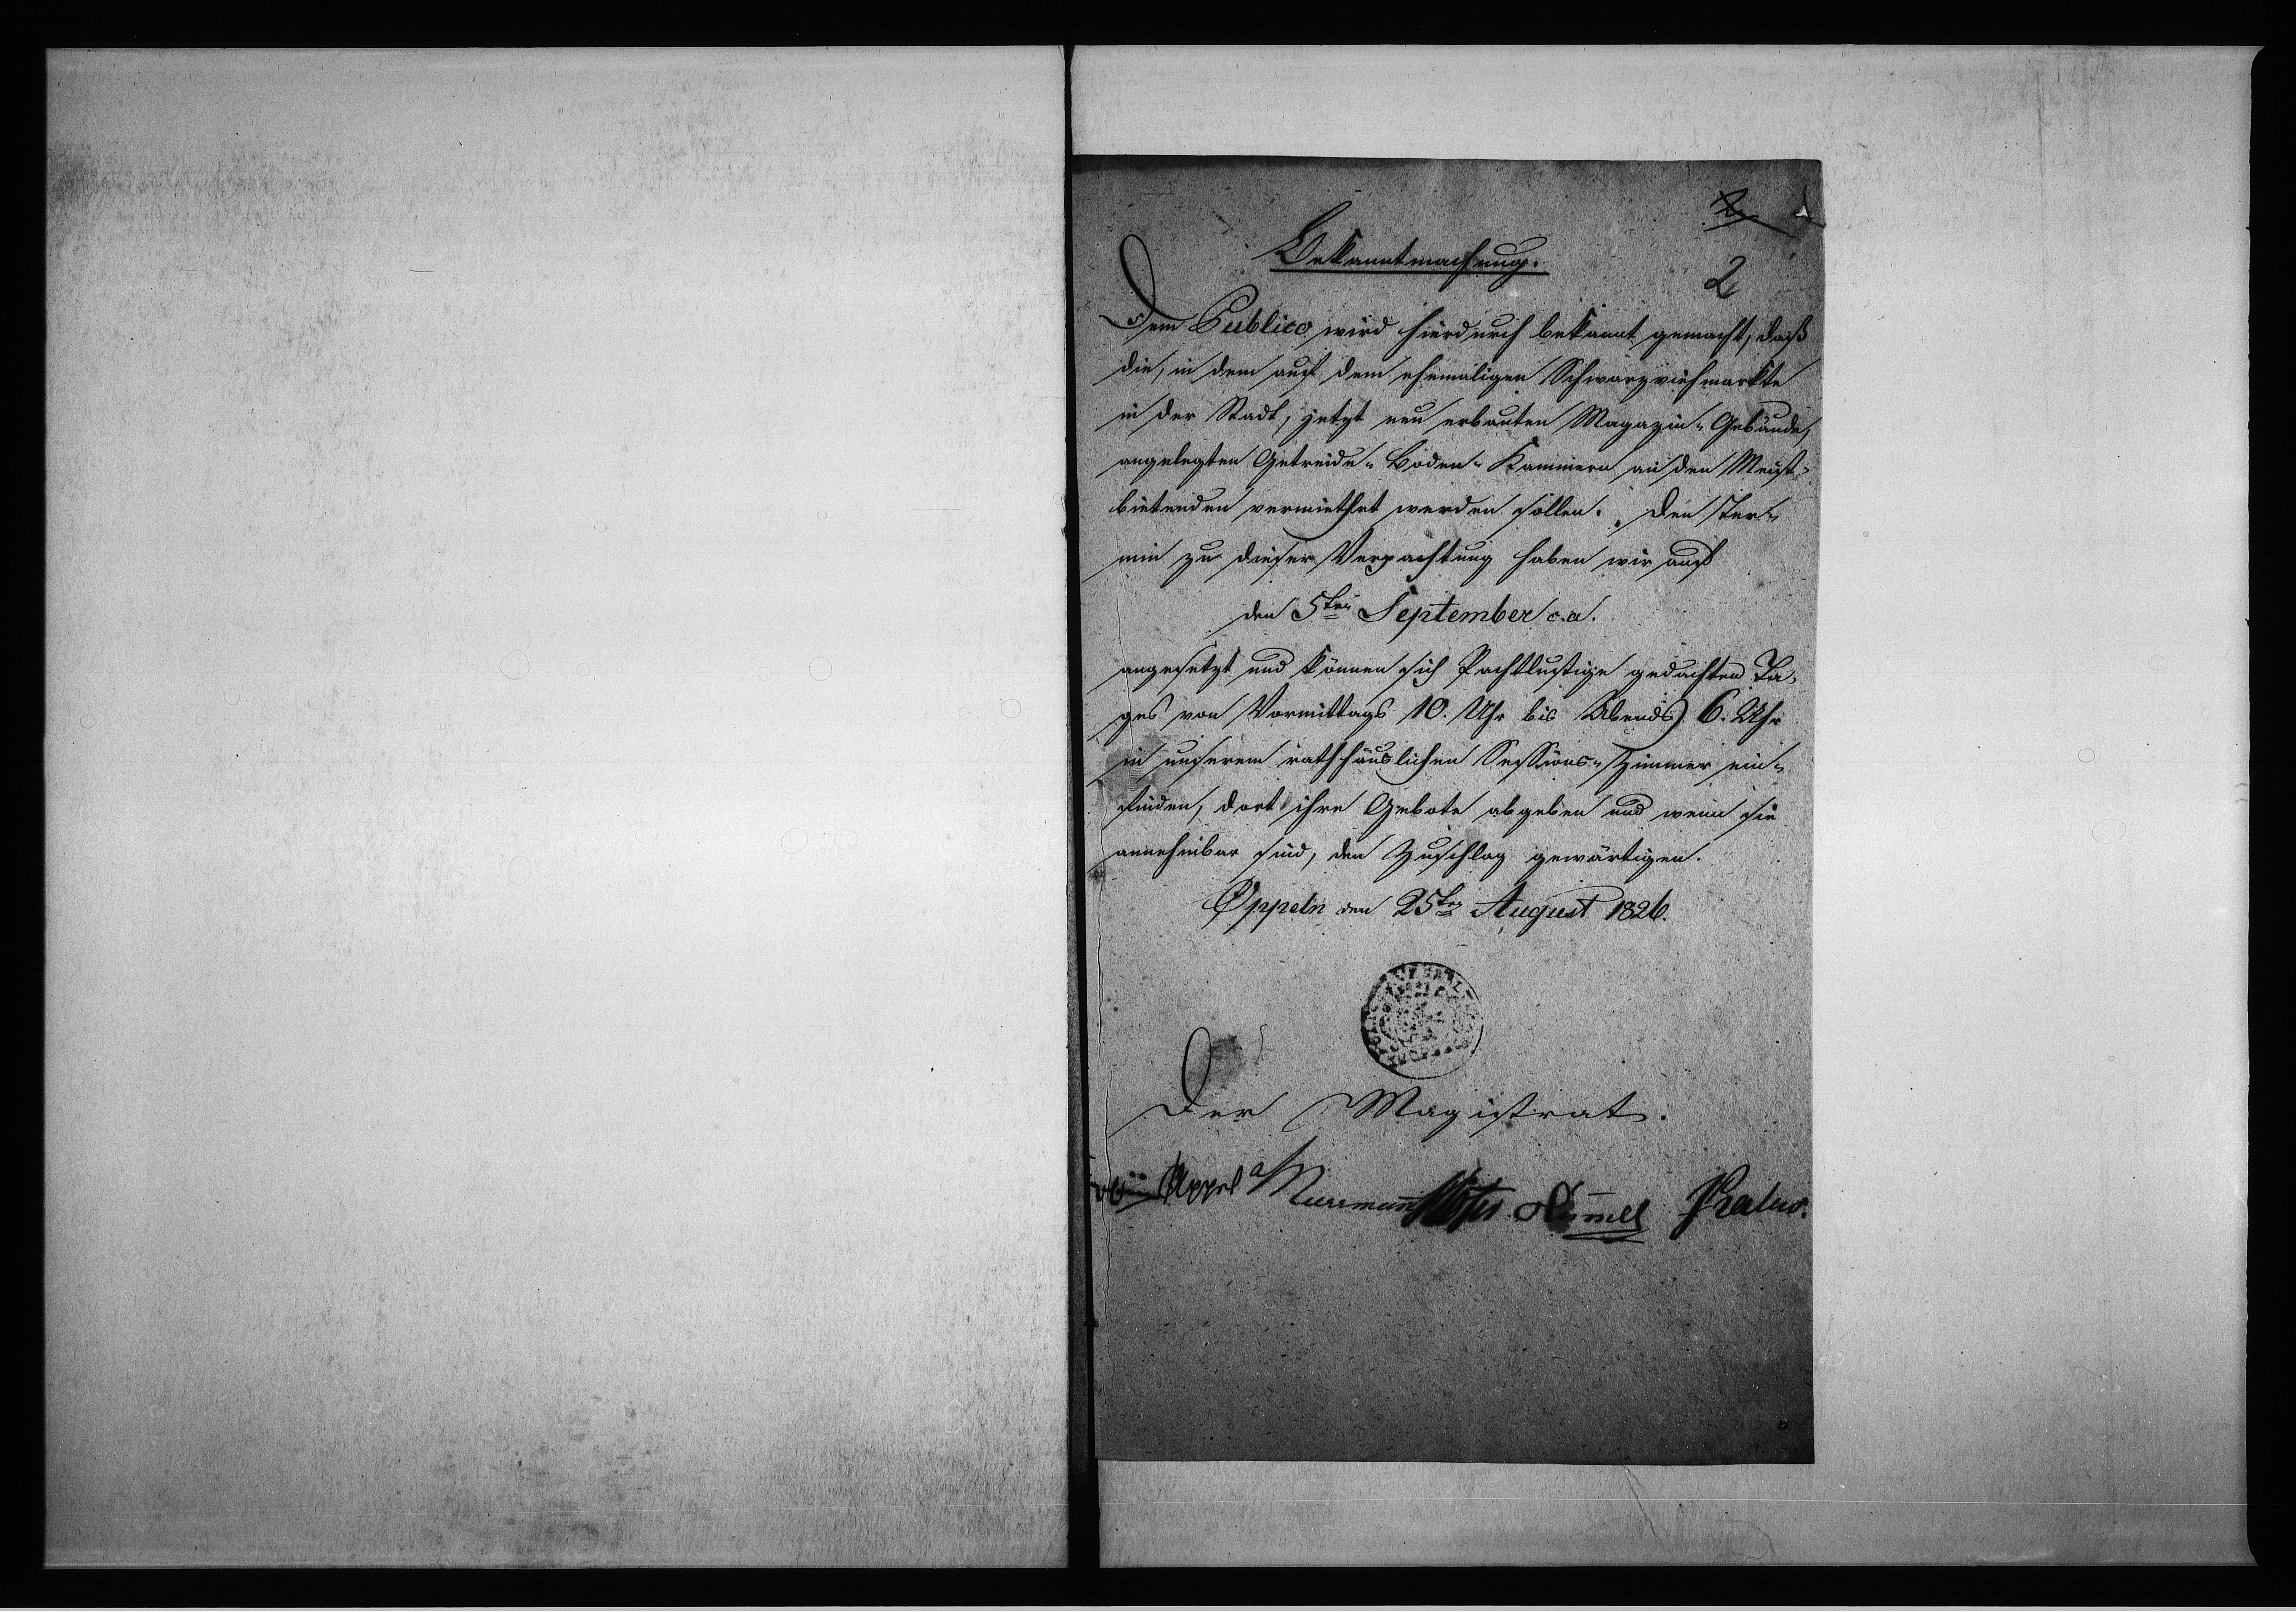 2
Bekanntmachung.
2
Dem Publico wird hierdurch bekannt gemacht, daß
die, in dem auf dem ehemaligen Schwarzviehmarkte
in der Stadt, jetzt neu erbauten Magazin-Gebäude,
angelegten Getreide-Boden-Kammern an den Meist-
bietenden vermiethet werden sollen. Den Ter-
min zu dieser Verpachtung haben wir auf
den 5ten September c.a.
angesetzt und können sich Pachtlustige gedachten Ta-
ges von Vormittags 10. Uhr bis Abends 6. Uhr
in unserem rathhäuslichen Sessions-Zimmer ein-
finden, dort ihre Gebote abgeben und wenn sie
annehmbar sind, den Zuschlag gewärtigen.
Oppeln den 25ten August 1826.
Der Magistrat.